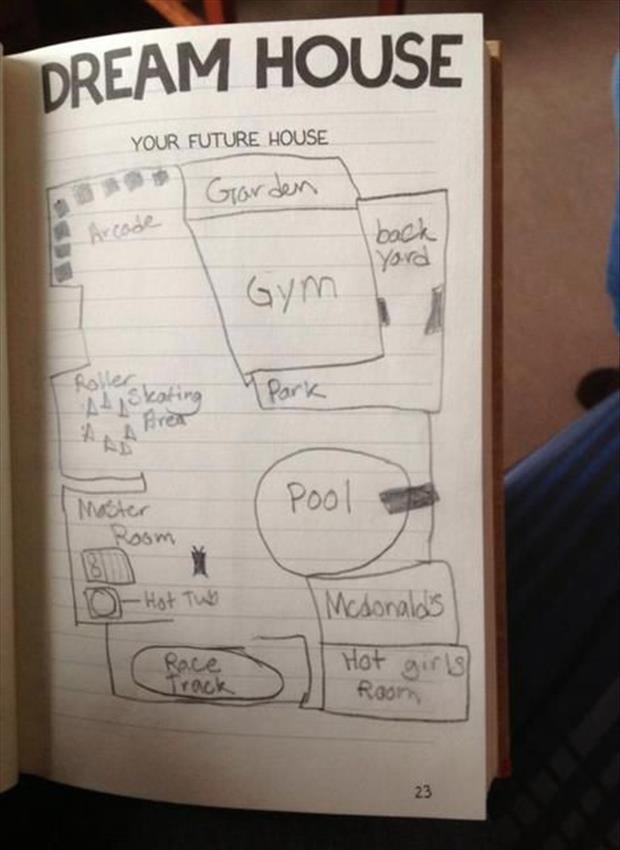 DREAM HOUSE
YOUR FUTURE HOUSE
Garden
Arcade
back
yard
Gym
Park
Roller
Skating
Area
Pool
Master
Room
8
Hot Tub
Mcdonald's
Race
Track
Hot girls
Room
23